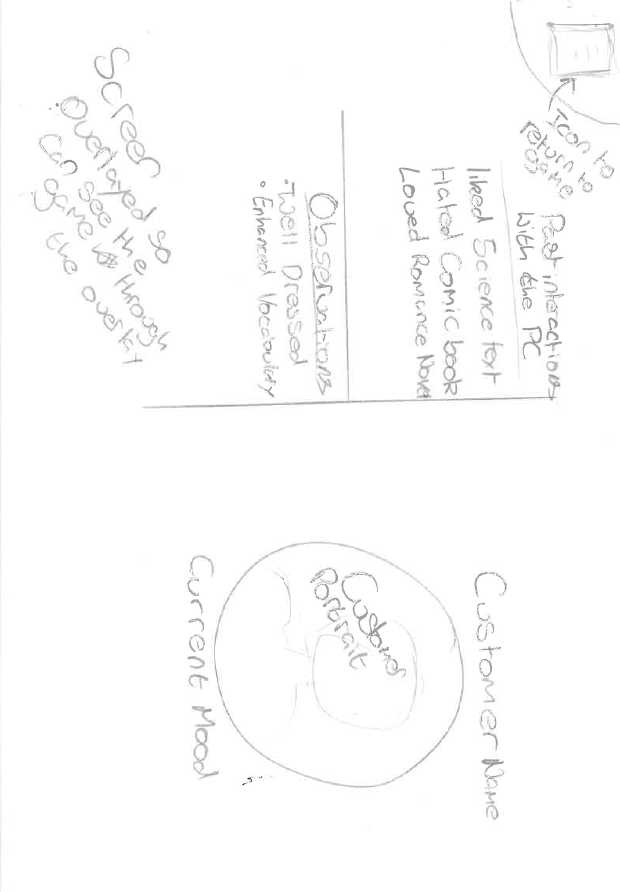 Icon to
return to
game
Past interactions
with the PC
liked Science text
Hated Comic book
Loved Romance Novel
Observations
• Well Dressed
• Enhanced Vocabulary
Screen
Overlayed so
can see the
game through
the overlay
Customer Name
Customer
Portrait
Current Mood